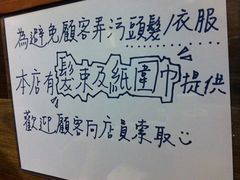 為避免顧客弄污頭髮/衣服
本店有髮束及紙圍巾提供
歡迎顧客向店員索取